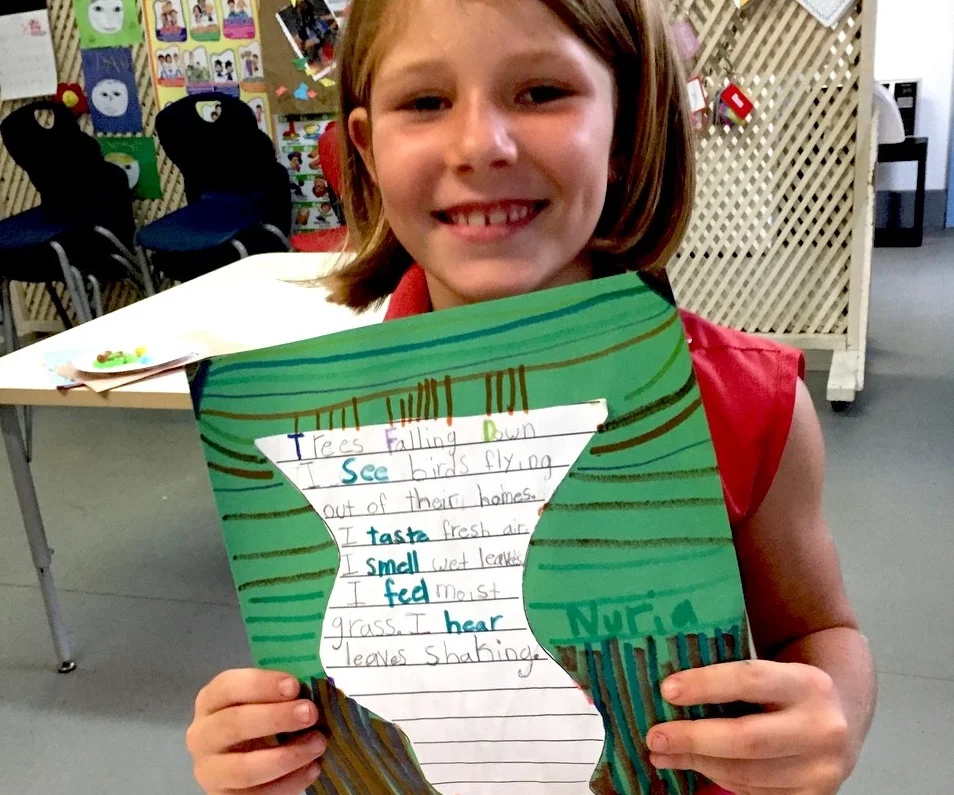 Trees Falling Down
I See birds flying
out of their homes.
I taste fresh air.
I smell wet leaves
I feel moist
grass. I hear
leaves shaking.
Nuria